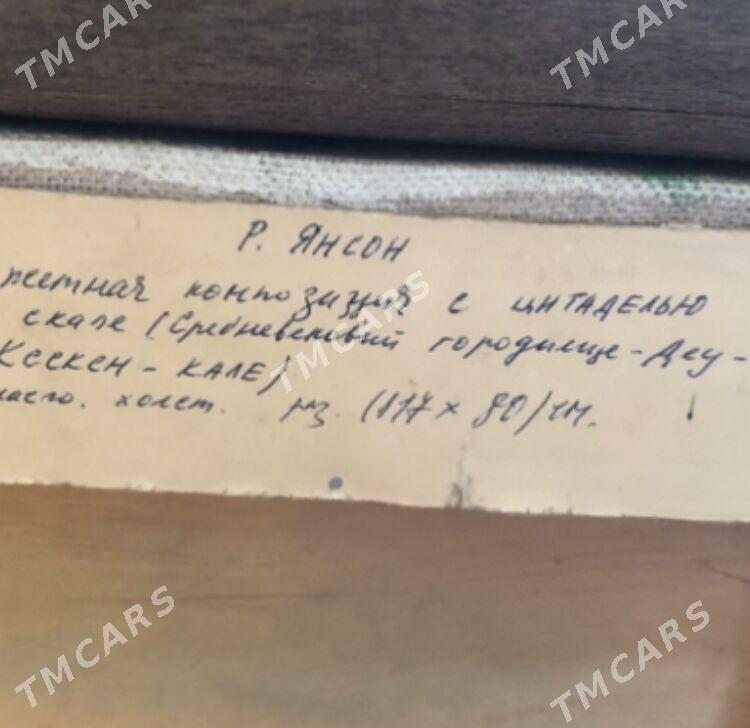 TMCARS
TMCARS
Р. ЯНСОН
жетная композиция с цитаделью
скале (Средневековый городище - Деу -
Кескен - кале)
масло. холст. рз. (117 х 80) см.
TMCARS
TMCARS
TMCARS